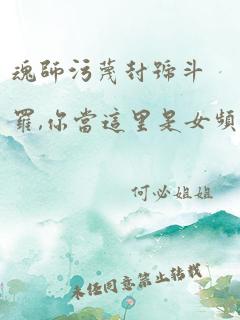 魂師污蔑封號斗
羅,你當這里是女頻
何必姐姐
未經同意禁止轉載